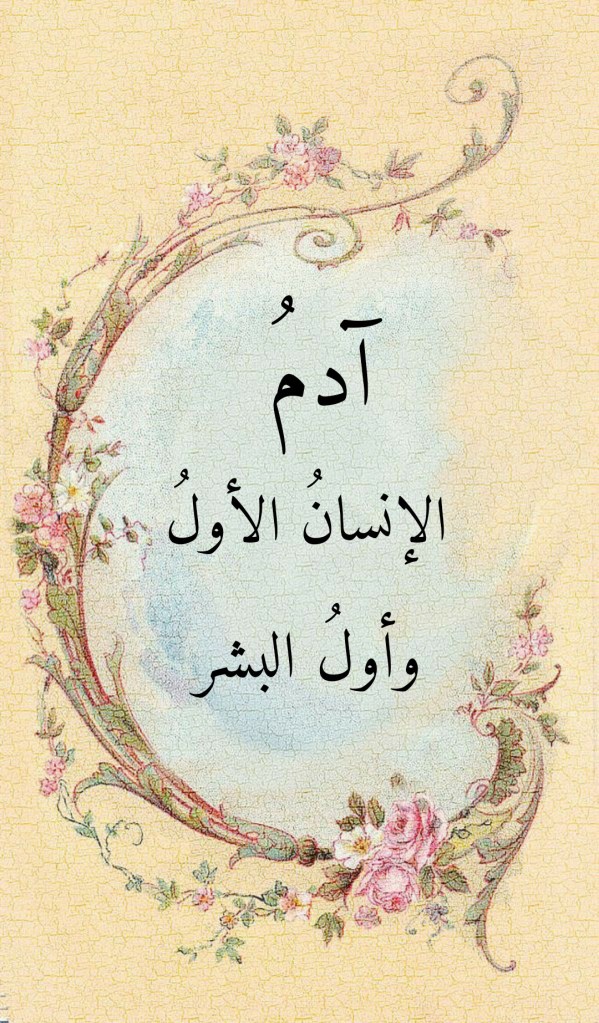 آدمُ
الإنسانُ الأولُ
وأولُ البشر